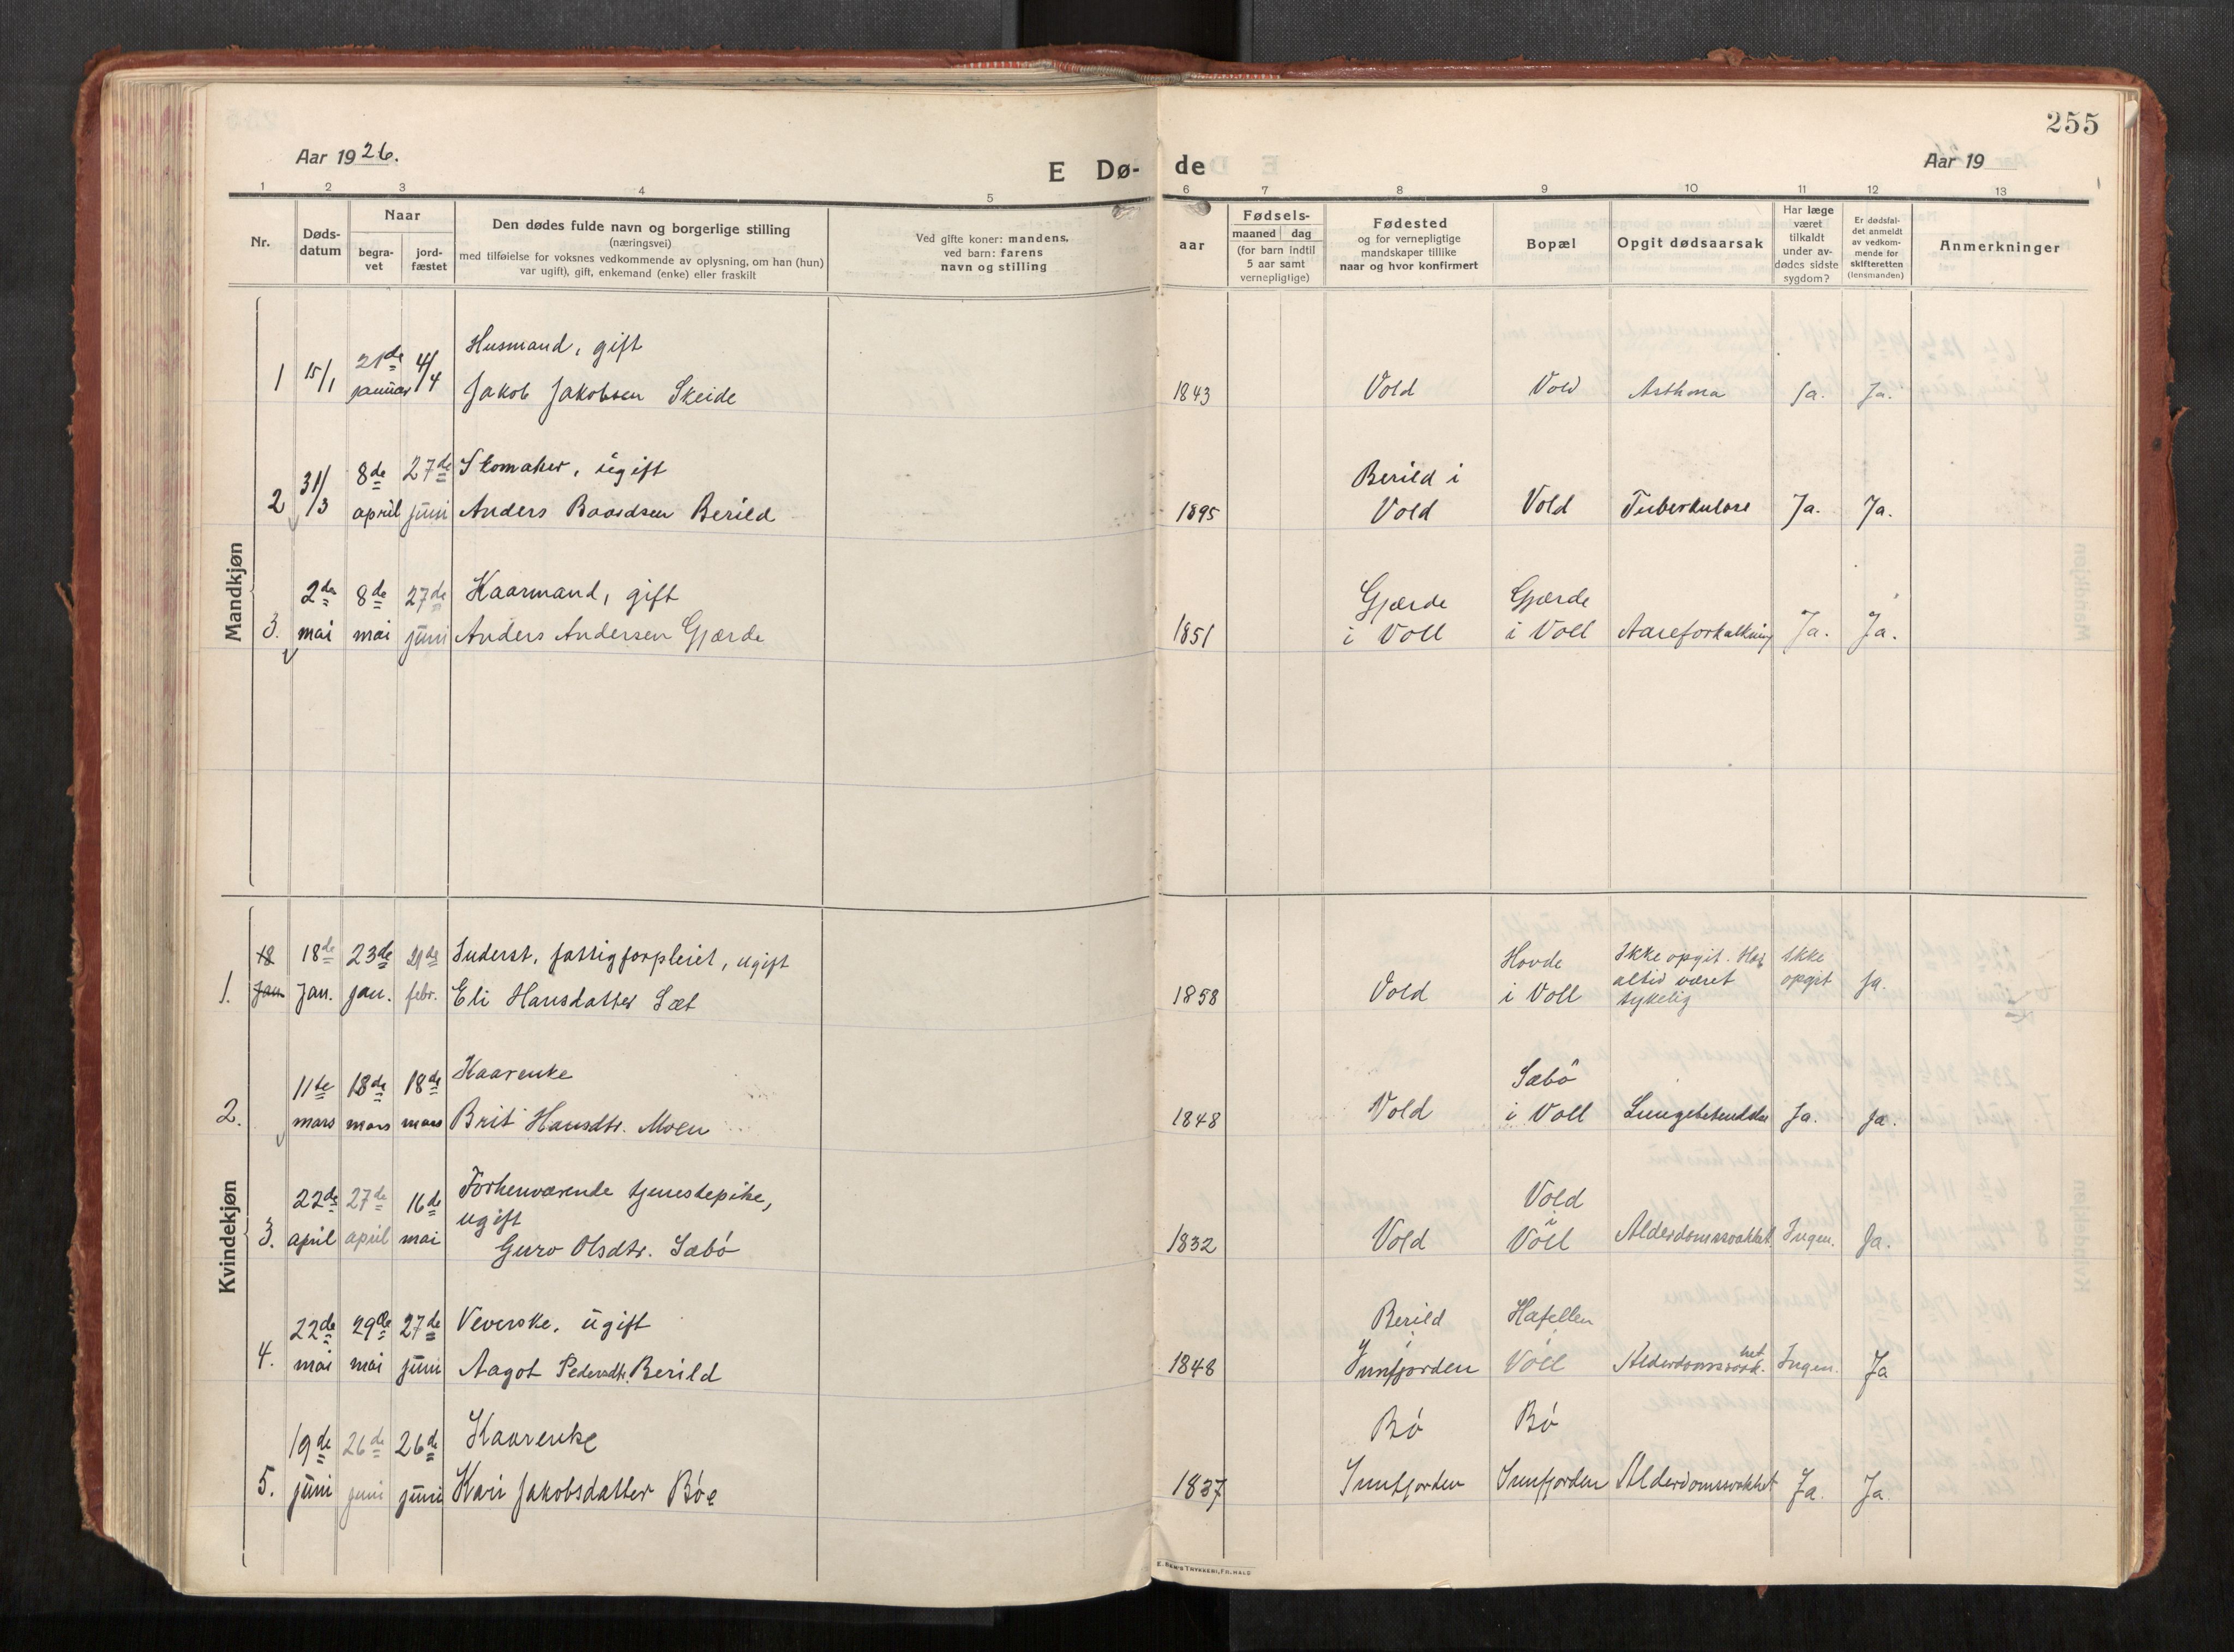 255
Aar 1926.
E Dø-
de
Aar 19
1 2 3 4 5 6 7 8 9 10 11 12 13
Nr.
Døds-
datum
Naar
begra-
vet
jord-
fæstet
Den dødes fulde navn og borgerlige stilling
(næringsvei)
med tilføielse for voksnes vedkommende av oplysning, om han (hun)
var ugift), gift, enkemand (enke) eller fraskilt
Ved gifte koner: mandens,
ved barn: farens
navn og stilling
aar
Fødsels-
maaned dag
(for barn indtil
5 aar samt
vernepligtige)
Fødested
og for vernepligtige
mandskaper tillike
naar og hvor konfirmert
Bopæl
Opgit dødsaarsak
Har læge
været
tilkaldt
under av-
dødes sidste
sygdom?
Er dødsfal-
det anmeldt
av vedkom-
mende for
skifteretten
(lensmanden)
Anmerkninger
Mandkjøn
Husmand, gift
1 15/1 21de januar 4/4 Jakob Jakobsen Skeide 1843 Vold Vold Asthma Ja. Ja.
Skomaker, ugift
2 31/3 8de april 27de juni Anders Baardsen Berild 1895 Berild i Vold Vold Tuberkulose Ja. Ja.
Kaarmand, gift
3. 2den mai 8de mai 27de juni Anders Andersen Gjærde 1851 Gjærde i Voll Gjærde i Voll Aareforkalkning Ja. Ja.
Kvindekjøn
Inderst, fattigforpleiet, ugift
1. 18 Jan 18de Jan. 23de jan. 21de febr. Eli Hansdatter Sæt 1858 Vold Hovde i Voll Ikke opgit. Har altid været sykelig Ikke opgit Ja.
Kaarenke
2. 11te mars 18de mars 18de mars Brit Hansdtr. Moen 1848 Vold Sæbö i Voll Lungebetendelse Ja. Ja.
Forhenværende tjenestepike,
ugift
3. 22de april 27de april 16de mai Guro Olsdtr. Sæbö 1832 Vold Vold i Voll Alderdomssvakhet. Ingen. Ja.
Veverske, ugift
4. 22de mai 29de mai 27de juni Aagot Pedersdtr. Berild 1848 Berild i Innfjorden Voll Alderdomssvakhet. Ingen. Ja
Kaarenke
5. 19de juni 26de juni 26de juni Kari Jakobsdatter Bøe 1837 Bö Innfjorden Bö Innfjorden Alderdomssvakhet Ja. Ja.